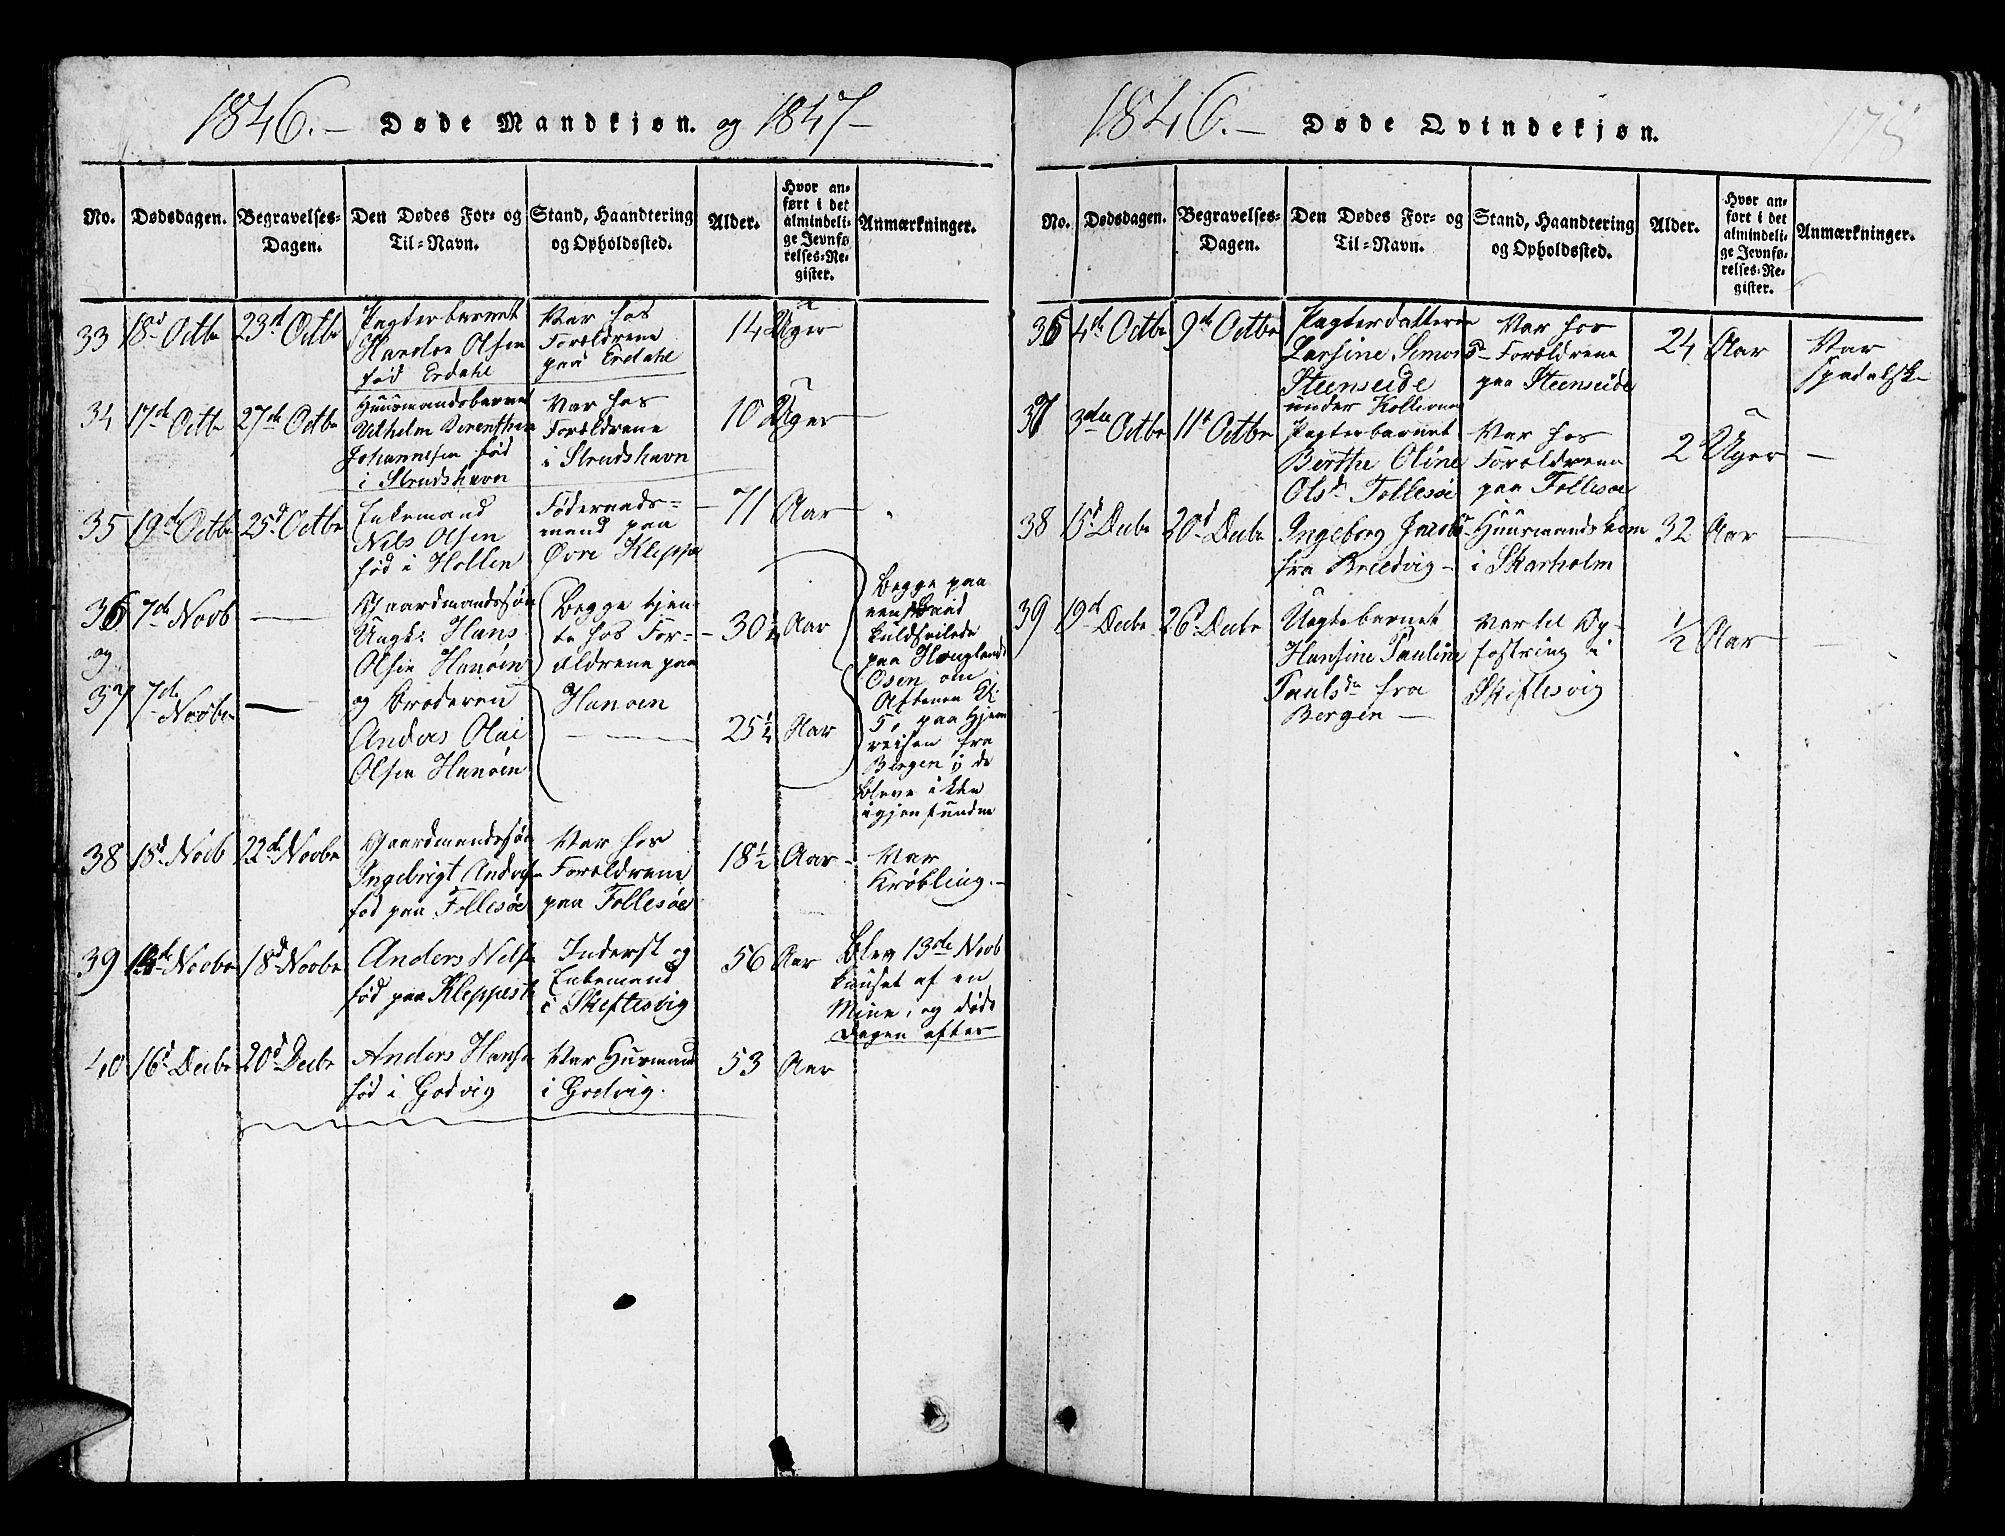 1846.– Døde Mandkjøn. og 1847–
No. Dødsdagen. Begravelses-Dagen. Den Dødes For- og Til-Navn. Stand, Haandtering og Opholdssted. Alder. Hvor anført i det almindelige Jevnførelses-Register. Anmærkninger.
33 18d Octbr 23d Octbr Pagterbarnet Var hos 14 Uger
Olsen Forældrene
fød Erdahl paa Erdahl
34 17de Octbr 27de Octbr Huusmandsbarnet Var hos 10 Uger –
Vilhelm Forældrene
Johannesen fød i Strudshavn
i Strudshavn
35 19d Octbr 25d Octbr Enkemand Føderaads- 71 Aar –
Nils Olsen mand paa
fød i Hollen Øvre Kleppe
36 7de Novb — Gaardmandssøn Begge tjen- 30½ Aar Begge paa
og Ungk: Hans te hos For-
Olsen Hanøen ældrene paa kuldseilede
37 7de Novbr — og Broderen Hanøen 25¼ Aar paa Hauglands
Anders Olai Osen om
Olsen Hanøen Aftenen Kl:
5, paa Hjem
reisen fra
Bergen; de
bleve ikke
igjenfundne
38 18d Novb 22de Novbr Gaardmandssøn Var hos 18½ Aar – Var
Ingebrigt Forældrene Krøbling. –
fød paa Follesøe paa Follesøe
39 14de Novbr 18d Novbr Anders Nilsen Inderst og 56 Aar Blev 13de Novb
fød paa Kleppestø Enkemand knuset af en
i Skiftesvig Mine, og døde
Dagen efter
40 16d Decbr 20d Decbr Anders Hansen Var Husmand 53 Aar
fød i Godvig i Godvig.
1846.– Døde Qvindekjøn. 175
No. Dødsdagen. Begravelses-Dagen. Den Dødes For- og Til-Navn. Stand, Haandtering og Opholdssted. Alder. Hvor anført i det almindelige Jevnførelses-Register. Anmærkninger.
36 4de Octbr 9de Octbr Pagterdatteren Var hos 24 Aar Var
Larsine Simonsd Forældrene spedalsk
Steenseide paa Steenseide
under
37 3die Octbr 11t Octbr Pagterbarnet Var hos 2 Uger –
Berthe Oline Forældrene
Olsdr Follesøe paa Follesøe
38 15d Decbr 20d Decbr Ingeborg Huusmandskone 32 Aar —
fra Breedvig – i Skarholm
39 19d Decbr 26d Decbr Uægtebarnet Var til Op- ½ Aar –
Hansine Pauline fostring i
Paulsdr fra Skiftesvig
Bergen –